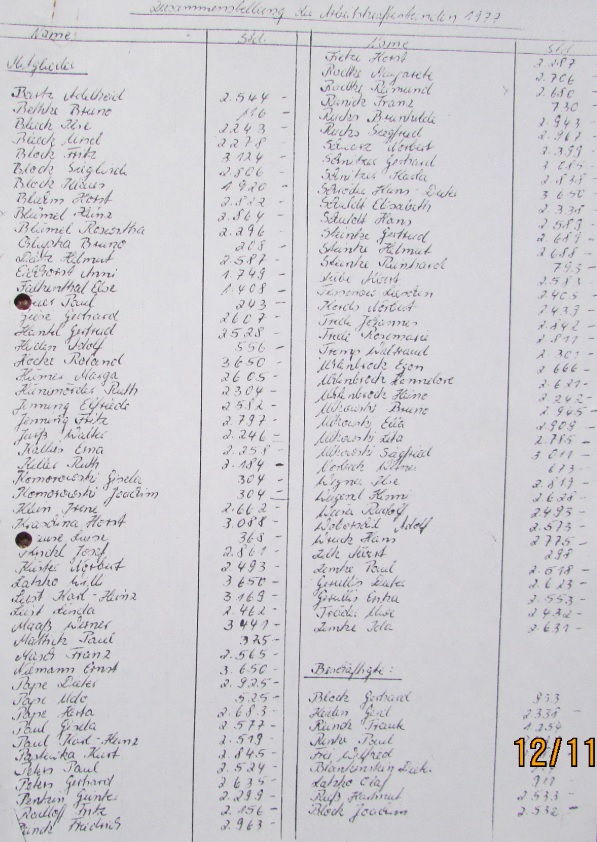 Zusammenstellung der Arbeitskräftestunden 1977
Name: Std.
Mitglieder
Bartz Adelheid 2.544 -
Bethke Bruno 116 -
Block Ilse 2243 -
Block Ursel 2278 -
Block Fritz 3.124 -
Block Sieglinde 2.806 -
Block Klaus 1.920 -
Bluhm Horst 2.812 -
Blümel Heinz 2.864 -
Blümel Roswitha 2.296 -
Chlupka Bruno 208 -
Dietz Helmut 2.587 -
Eickhorst Anni 1.749 -
Falkenthal Else 1.408 -
Paul 243 -
Giese Gerhard 2607 -
Hantel Gertrud 2528 -
Heiden Adolf 556 -
Höcke Roland 3.650 -
Hümer Marga 2605 -
Hünemörder Ruth 2304 -
Jenning Elfriede 2582 -
Jenning Fritz 2.797 -
Jurß Walter 2.246 -
Kallies Erna 2.258 -
Keller Ruth 2.184 -
Komorowski Gisela 304 -
Komorowski Joachim 304 -
Klein Irene 2.662 -
Krasdina Horst 3.088 -
Luise 368 -
Josef 2.861 -
Küster Norbert 2.493 -
Latzko Willi 3.650 -
List Karl-Heinz 3.169 -
List Linda 2.462 -
Maaß Werner 3.441 -
Mattick Paul 325 -
Marsch Franz 2.565 -
Niemann Ernst 3.650 -
Pape Dieter 2.925 -
Pape Udo 525 -
Pape Herta 2.683 -
Paul Gisela 2.577 -
Paul Karl-Heinz 2.519 -
Pastewka Kurt 2.845 -
Peters Paul 2.524 -
Peters Gerhard 2.635 -
Pentzin Günter 2.299 -
Radloff Fritz 2.156 -
Friedrich 2.963 -
Name Std.
Fritze Horst 2.287
Radtke Margarete 2.706 -
Radtke Raimund 2.680 -
Franz 730 -
Fuchs Brunhilde 2.943 -
Fuchs Siegfried 2.967 -
Schwarz Norbert 2.399 -
Schnitzer Gerhard 3.085 -
Schnitzer Herta 2.828 -
Schröder Hans-Dieter 3.650 -
Schuldt Elisabeth 2.338 -
Schuldt Hans 2.583 -
Steinke Gertrud 2.689 -
Steinke Helmut 2.688 -
Steinke Reinhard 793 -
Horst 2.583 -
2405 -
Norbert 2.437 -
Johannes 2.842 -
Rosemarie 2.811 -
Waltraud 2.301 -
Uhlenbrock Egon 2.666 -
Uhlenbrock Hannelore 2.621 -
Uhlenbrock Heino 2.242 -
Utkowski Bruno 2.945 -
Utkowski Edita 2.909 -
Utkowski Lita 2.785 -
Utkowski Siegfried 3.011 -
Werner 673 -
Wegner Ilse 2.819 -
Wegent Henni 2.628 -
Rudolf 2493 -
Woberseit Adolf 2.573 -
Wruck Hans 2775 -
298 -
Lemke Paul 2.518 -
Gesellus Dieter 2.623 -
Gesellus Erika 2.553 -
Ilse 2432 -
Lemke Ida 2.631 -
Beschäftigte:
Block Gerhard 933
Heiden Gert 2338 -
Frank 1.254
Paul
Frei Wilfried
Blankenstein Dieter
Latzko Olaf 911 -
Ruß Hartmut 2.533 -
Block Joachim 2.532 -
12/11